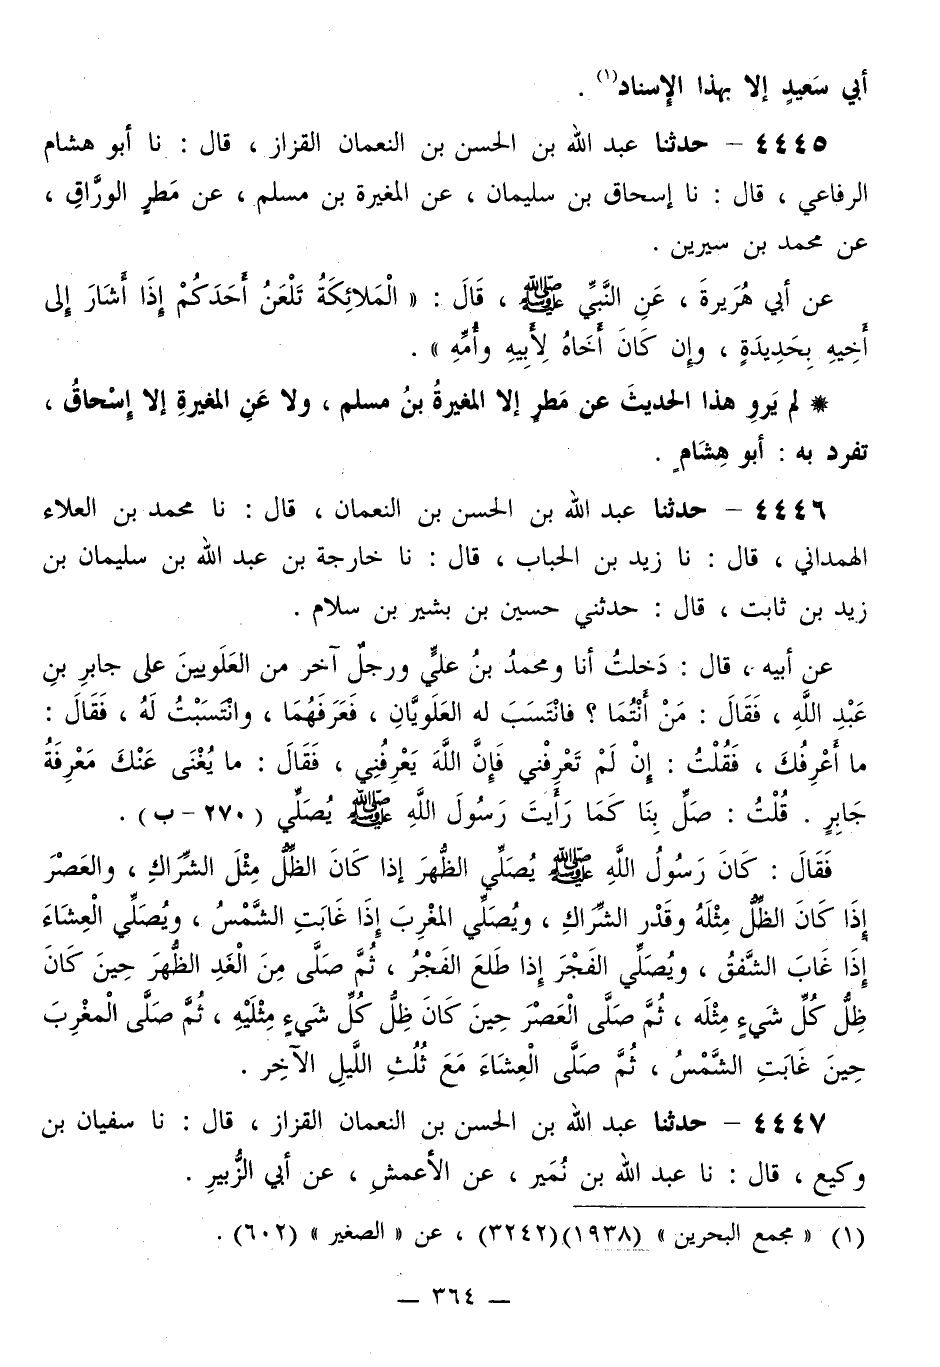 أبي سَعيدٍ إلا بهذا الإِسناد(١) .
٤٤٤٥ – حدثنا عبد الله بن الحسن بن النعمان القزاز ، قال : نا أبو هشام
الرفاعي ، قال : نا إسحاق بن سليمان ، عن المغيرة بن مسلم ، عن مَطرٍ الورَّاقِ ،
عن محمد بن سيرين .
عن أبي هُرَيرةَ ، عَنِ النَّبيِّ ﷺ ، قَالَ : « الْمَلائِكَةُ تَلْعَنُ أَحَدَكُمْ إِذَا أَشَارَ إِلى
أَخِيهِ بِحَدِيدَةٍ ، وإِن كَانَ أَخَاهُ لِأَبِيهِ وأُمِّهِ » .
* لم يَروِ هذا الحديثَ عن مَطرٍ إلا المغيرةُ بنُ مسلم ، ولا عَنِ المغيرةِ إلا إِسْحاقُ ،
تفرد به : أبو هِشَامٍ .
٤٤٤٦ – حدثنا عبد الله بن الحسن بن النعمان ، قال : نا محمد بن العلاء
الهمداني ، قال : نا زيد بن الحباب ، قال : نا خارجة بن عبد الله بن سليمان بن
زيد بن ثابت ، قال : حدثني حسين بن بشير بن سلام .
عن أبيه ، قال : دَخلتُ أنا ومحمدُ بنُ عليٍّ ورجلٌ آخر من العَلَويينَ على جابرِ بنِ
عَبْدِ اللَّهِ ، فَقَالَ : مَنْ أَنْتُمَا ؟ فانْتَسَبَ له العَلَويَّانِ ، فَعَرَفَهُمَا ، وانْتَسَبْتُ لَهُ ، فَقَالَ :
ما أَعْرِفُكَ ، فَقُلْتُ : إِنْ لَمْ تَعْرِفْني فَإِنَّ اللَّهَ يَعْرِفُنِي ، فَقَالَ : ما يُغْنَى عَنْكَ مَعْرِفَةُ
جَابِرٍ . قُلْتُ : صَلِّ بِنَا كَمَا رَأَيتَ رَسُولَ اللَّهِ ﷺ يُصَلِّي ( ٢٧٠ – ب ) .
فَقَالَ : كَانَ رَسُولُ اللَّهِ ﷺ يُصَلِّي الظُّهرَ إذا كَانَ الظِّلُّ مِثْلَ الشِّرَاكِ ، والعَصْرَ
إِذَا كَانَ الظِّلُّ مِثْلَهُ وقَدْر الشِّرَاكِ ، ويُصَلِّي المَغْرِبَ إِذَا غَابَتِ الشَّمْسُ ، ويُصَلِّي الْعِشَاءَ
إِذَا غَابَ الشَّفقُ ، ويُصَلِّي الفَجْرَ إذا طَلعَ الفَجْرُ ، ثُمَّ صَلَّى مِنَ الْغَدِ الظُّهرَ حِينَ كَانَ
ظِلُّ كُلِّ شَيءٍ مِثْلَه ، ثُمَّ صَلَّى الْعَصْرَ حِينَ كَانَ ظِلُّ كُلِّ شَيءٍ مِثْلَيْهِ ، ثُمَّ صَلَّى الْمغْرِبَ
حِينَ غَابَتِ الشَّمْسُ ، ثُمَّ صَلَّى الْعِشَاءَ مَعَ ثُلُثِ اللَّيلِ الآخِر .
٤٤٤٧ – حدثنا عبد الله بن الحسن بن النعمان القزاز ، قال : نا سفيان بن
وكيع ، قال : نا عبد الله بن نُمَير ، عن الأعمشِ ، عن أبي الزُّبيرِ .
(١) « مجمع البحرين » (١٩٣٨)(٣٢٤٢) ، عن « الصغير » (٦٠٢) .
— ٣٦٤ —